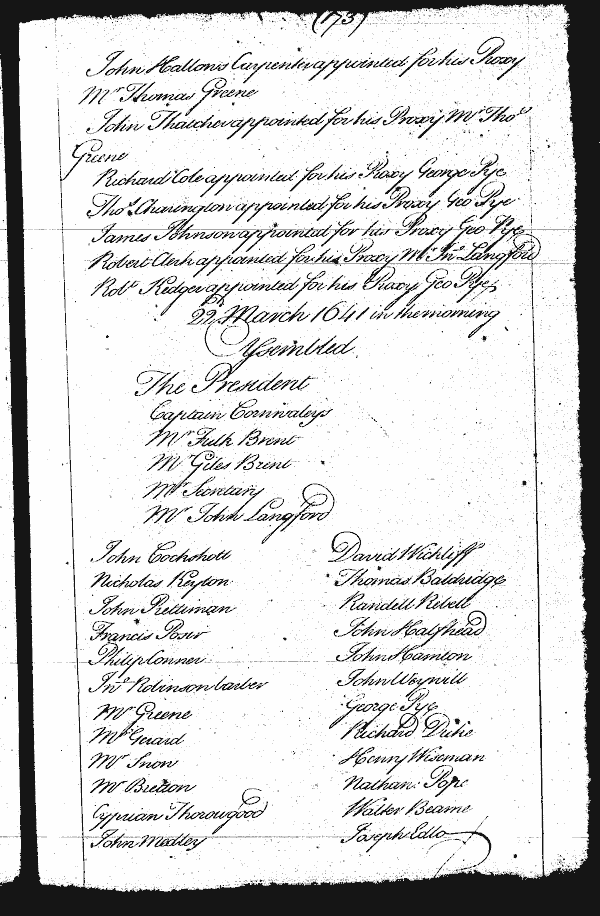 (173)
John Hallons Carpenter appointed for his Proxy
Mr Thomas Greene
John Thatcher appointed for his Proxy Mr Tho
Greene
Richard Cole appointed for his Proxy George Pye
Tho. Charington appointed for his Proxy Geo Pye
James Johnson appointed for his Proxy Geo Pye
Robert Clerk appointed for his Proxy Mr Jno Langford
Robt Kedger appointed for his Proxy Geo Pye
22th March 1641 in the morning
Assembled
The President
Captain Cornwaleys
Mr Fulk Brent
Mr Giles Brent
Mr Secretary
Mr John Langford
John Cockshott
Nicholas Keyton
John Prettiman
Francis Posir
Philip Conner
Jno Robinson barber
Mr Greene
Mr Gerard
Mr Snow
Mr Bretton
Cyprian Thorougood
John Medley
David Wickliff
Thomas Baldridge
Randell Revell
John Halfhead
John Hamton
John Weyvill
George Pye
Richard Duke
Henry Wiseman
Nathan: Pope
Walter Beame
Joseph Edlo